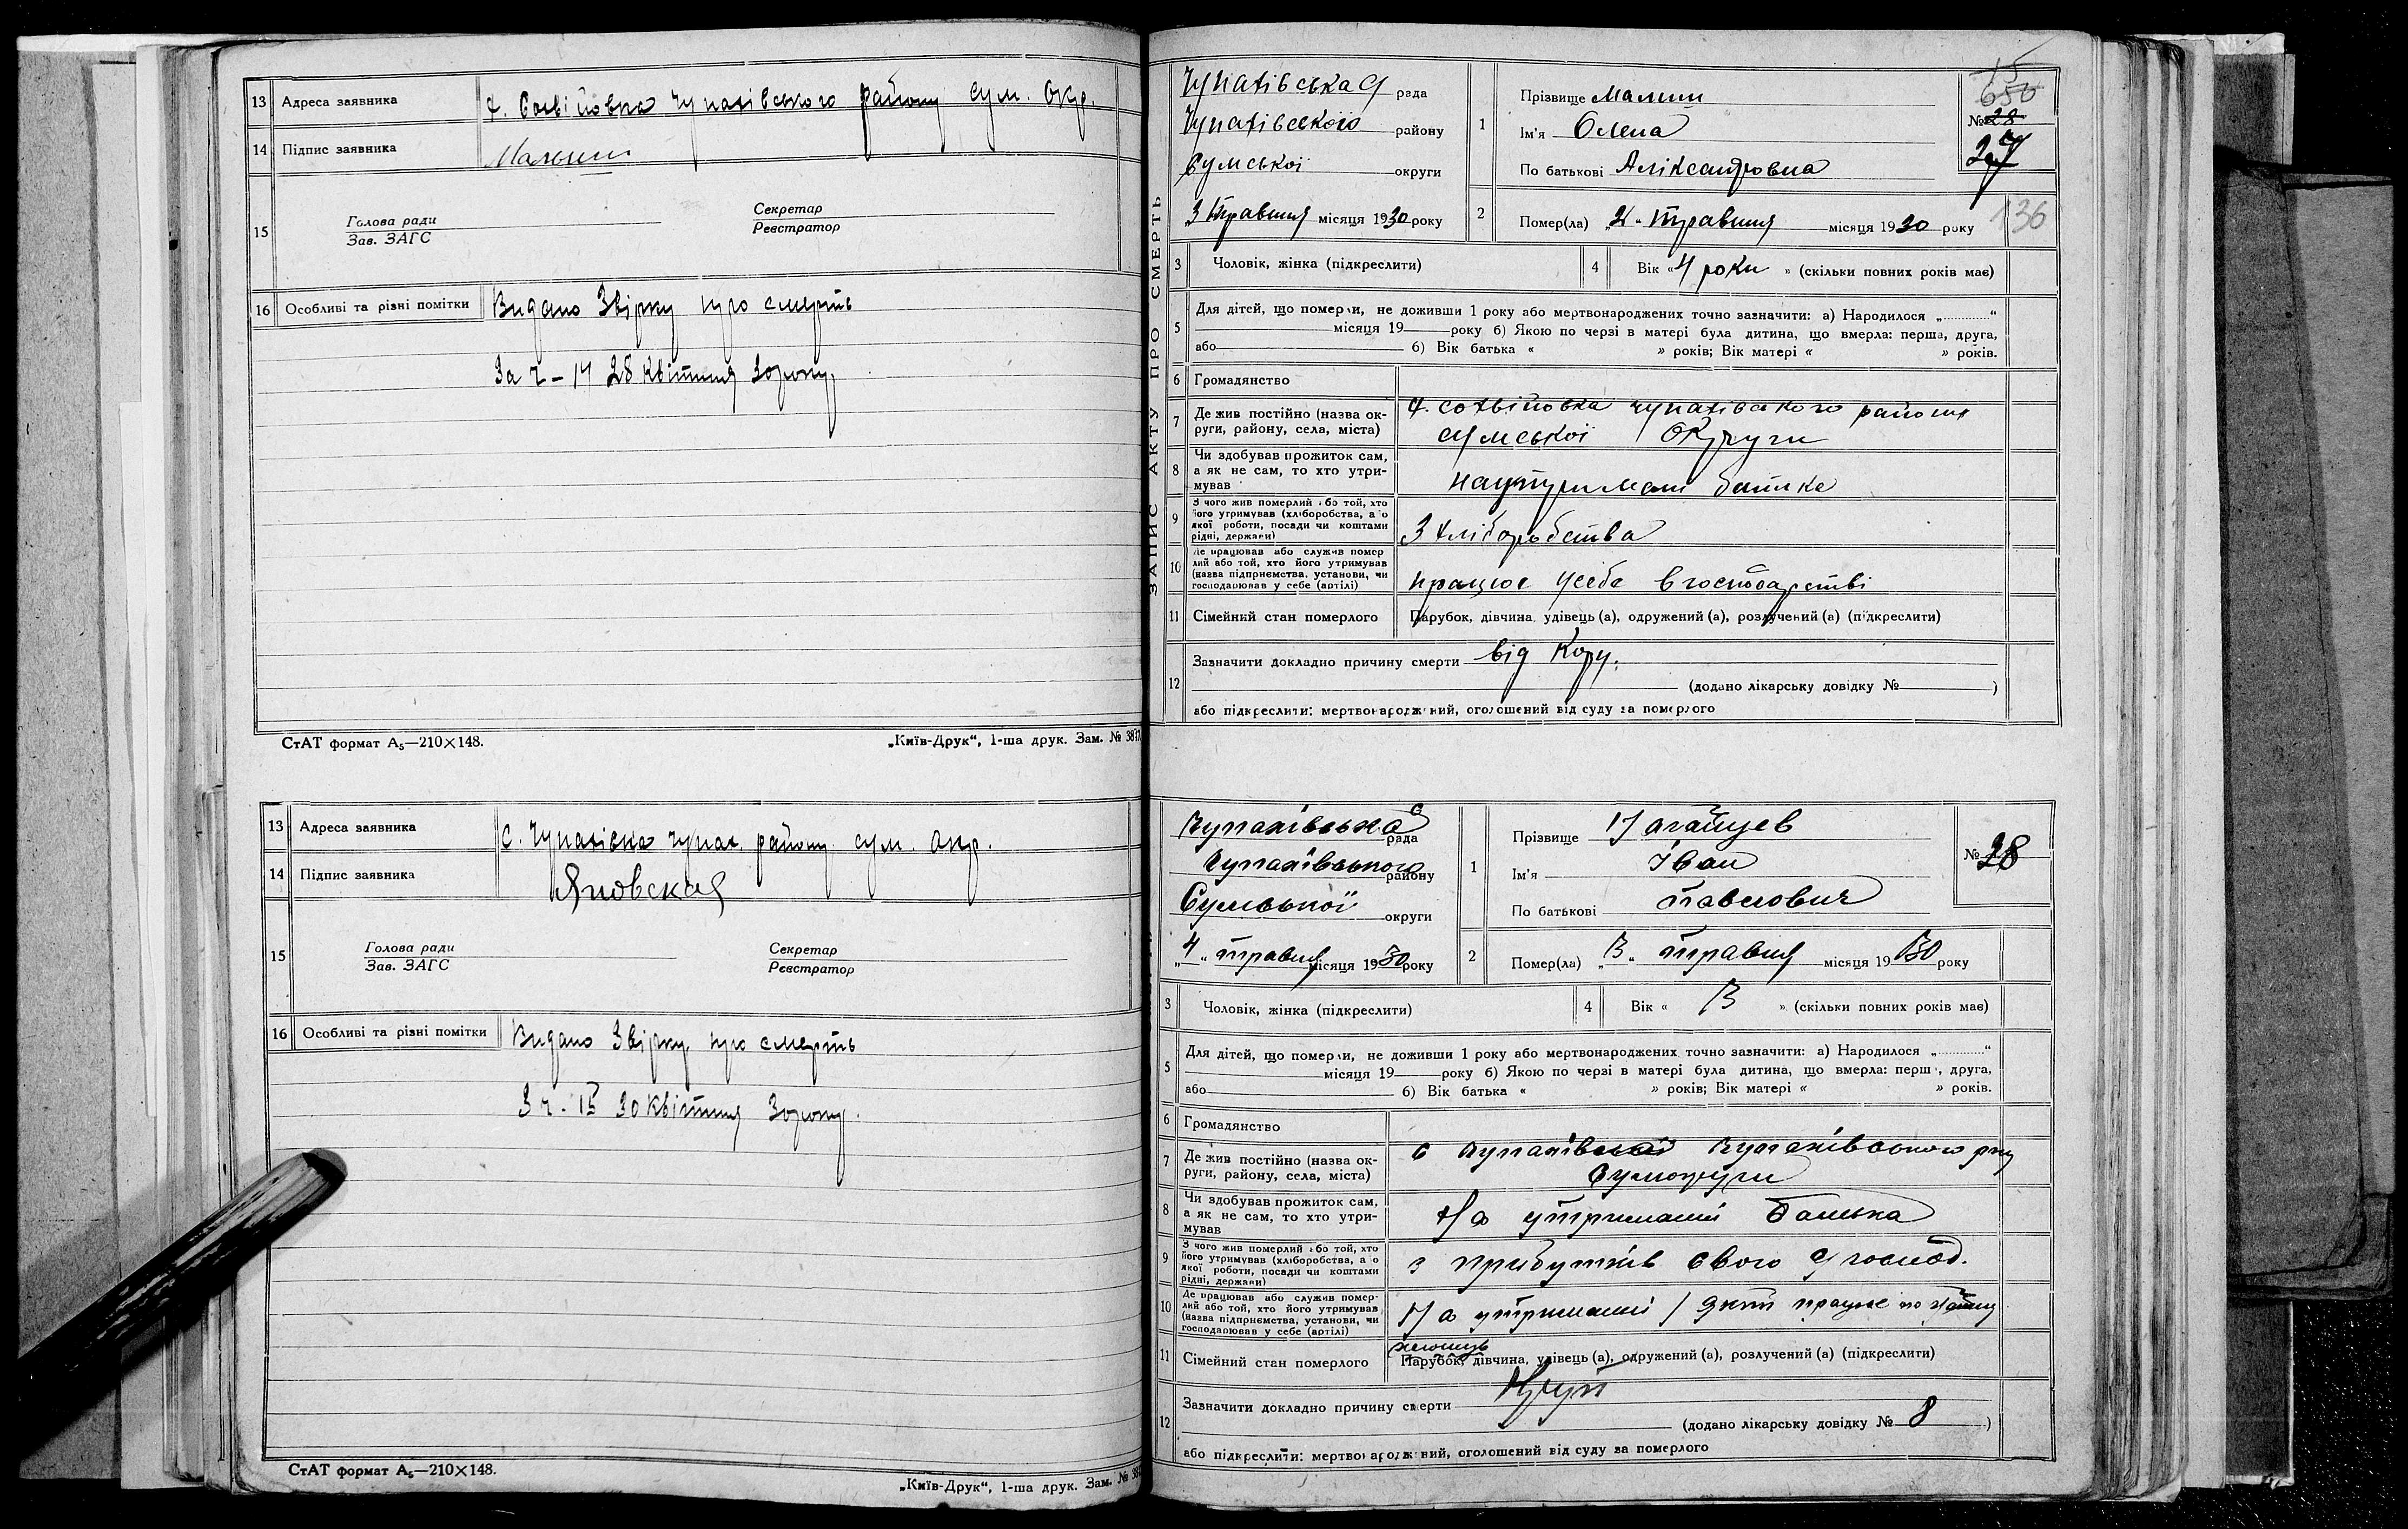 13 Адреса заявника х. Софіїовка Чупахівського району Сум. Окр.
14 Підпис заявника Малиш
15 Голова ради Секретар
Зав. ЗАГС Реєстратор
16 Особливі та різні помітки Видано Звірку про смерть
За ч-14 28 квітня 30 року
СтАТ формат А₅—210×148. „Київ-Друк“, 1-ша друк. Зам. №
13 Адреса заявника с. Чупахівка Чупах. району Сум. Окр.
14 Підпис заявника
15 Голова ради Секретар
Зав. ЗАГС Реєстратор
16 Особливі та різні помітки Видано Звірку про смерть
З ч. 15 30 квітня 30 року.
СтАТ формат А₅—210×148.
„Київ-Друк“, 1-ша друк. Зам. №
ЗАПИС АКТУ ПРО СМЕРТЬ
Чупахівська рада
Чупахівського району
Сумської округи
„3 травня місяця 1930 року
15
650
№ 28
27
136
1 Прізвище Малиш
Ім'я Олена
По батькові Аліксандровна
2 Помер(ла) „2“ травня місяця 1930 року
3 Чоловік, жінка (підкреслити) 4 Вік «4 роки» (скільки повних років має)
5 Для дітей, що померли, не доживши 1 року або мертвонароджених точно зазначити: а) Народилося „............“
місяця 19 року б) Якою по черзі в матері була дитина, що вмерла: перша, друга,
або б) Вік батька « » років; Вік матері « » років.
6 Громадянство
7 Де жив постійно (назва ок-
руги, району, села, міста) х. Софіїовка Чупахівського району
Сумської Округи
8 Чи здобував прожиток сам,
а як не сам, то хто утри-
мував на утримані батька
9 З чого жив померлий або той, хто
його утримував (хліборобства, або
якої роботи, посади чи коштами
рідні, держави) З хліборобства
10 Де працював або служив помер
лий або той, хто його утримував
(назва підприємства, установи, чи
господарював у себе (артілі) працює у себе в господарстві
11 Сімейний стан померлого Парубок, дівчина, удівець (а), одружений (а), розлучений (а) (підкреслити)
12 Зазначити докладно причину смерти від Кору.
(додано лікарську довідку № )
або підкреслити: мертвонароджений, оголошений від суду за померлого
Чупахівська рада
Чупахівського району
Сумської округи
„4“ травня місяця 1930 року
1 Прізвище
Ім'я Іван
По батькові Павлович
№ 28
2 Помер(ла) „3“ травня місяця 1930 року
3 Чоловік, жінка (підкреслити) 4 Вік « 3 » (скільки повних років має)
5 Для дітей, що померли, не доживши 1 року або мертвонароджених точно зазначити: а) Народилося „............“
місяця 19 року б) Якою по черзі в матері була дитина, що вмерла: перша, друга,
або б) Вік батька « » років; Вік матері « » років.
6 Громадянство
7 Де жив постійно (назва ок-
руги, району, села, міста) с Чупахівської Чупахівського р-ну
Сумокруги
8 Чи здобував прожиток сам,
а як не сам, то хто утри-
мував На утриманні Батька
9 З чого жив померлий або той, хто
його утримував (хліборобства, або
якої роботи, посади чи коштами
рідні, держави) з прибутків свого господ.
10 Де працював або служив помер-
лий або той, хто його утримував
(назва підприємства, установи, чи
господарював у себе (артілі) На утриманні працює по найму
11 Сімейний стан померлого хлопець
Парубок, дівчина, удівець (а), одружений (а), розлучений (а) (підкреслити)
12 Зазначити докладно причину смерти Круп
(додано лікарську довідку № 8 )
або підкреслити: мертвонароджений, оголошений від суду за померлого